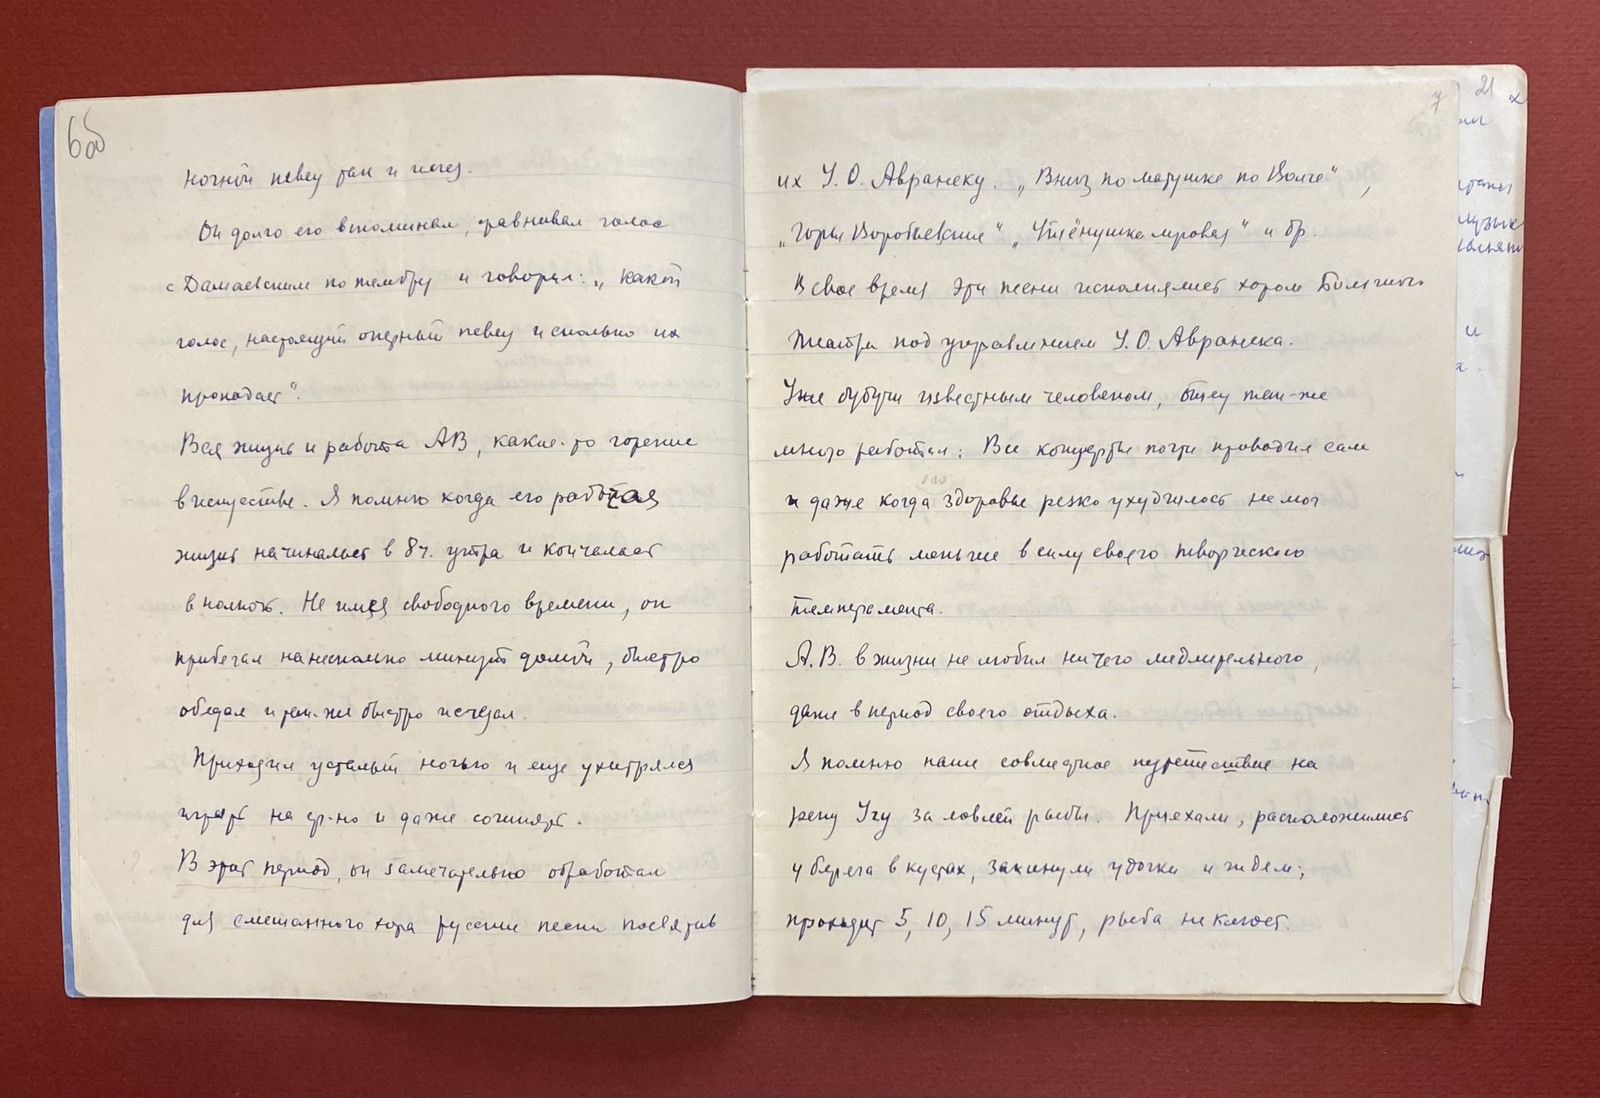 6об
ночной певец так и исчез.
Он долго его вспоминал, сравнивал голос
с Дамаевским по тембру и говорил: „какой
голос, настоящий оперный певец и сколько их
пропадает“.
Вся жизнь и работа АВ, какое-то горение
в искусстве. Я помню когда его рабочая
жизнь начиналась в 8 ч. утра и кончалась
в полночь. Не имея свободного времени, он
прибегал на несколько минут домой, быстро
обедал и так-же быстро исчезал.
Приходил усталый ночью и еще ухитрялся
играть на ф-но и даже сочинять.
В этот период, он замечательно обработал
для смешанного хора русские песни посвятив
7
их У. О. Авранеку. „Вниз по матушке по Волге“,
„Горы Воробьевские“ „Утёнушка луговая“ и др.
В свое время эти песни исполнялись хором Большого
театра под управлением У. О. Авранека.
Уже будучи известным человеком, отец так-же
много работал: Все концерты почти проводил сам
и даже когда его здоровье резко ухудшилось не мог
работать меньше в силу своего творческого
темперамента.
А. В. в жизни не любил ничего медлительного,
даже в период своего отдыха.
Я помню наше совместное путешествие на
реку Угу за ловлей рыбы. Приехали, расположились
у берега в кустах, закинули удочки и ждем;
проходит 5, 10, 15 минут, рыба не клюет.
21